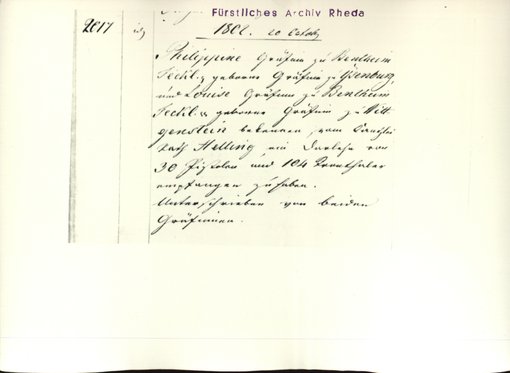 Fürstliches Archiv Rheda
2017
1802. 20 October
Philippine Gräfin zu Bentheim
Teckl. geborene Gräfin zu Isenburg,
und Louise Gräfin zu Bentheim
Teckl. geborene Gräfin zu Witt-
genstein bekennen, vom Canzlei
rath Helling ein Darlehn von
30 Pistolen und 104 Kronthaler
empfangen zu haben.
Unterschrieben von beiden
Gräfinnen.